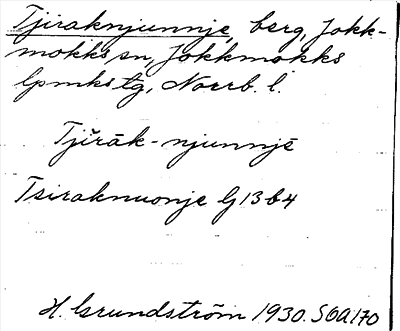 Tjiraknjunnje, berg, Jokk-
mokks sn, Jokkmokks
lpmks tg, Norrb. l.
Tjĭrāk-njunnjē
Tsiraknuonje G13b4
H. Grundström 1930. SOA170